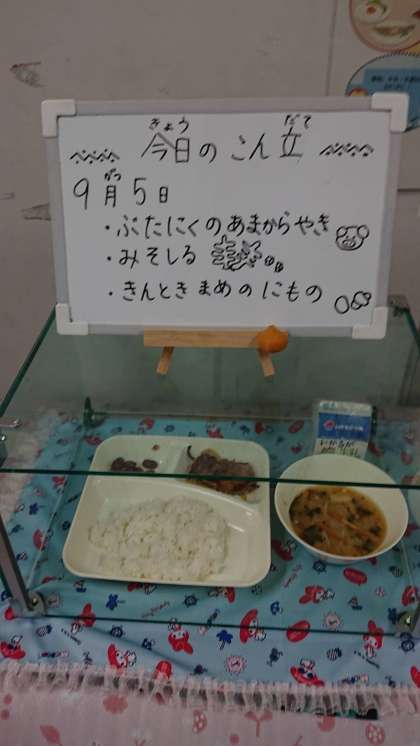 きょう だて
今日のこん立
がつ
9月5日
・ぶたにくのあまからやき
・みそしる
・きんときまめのにもの